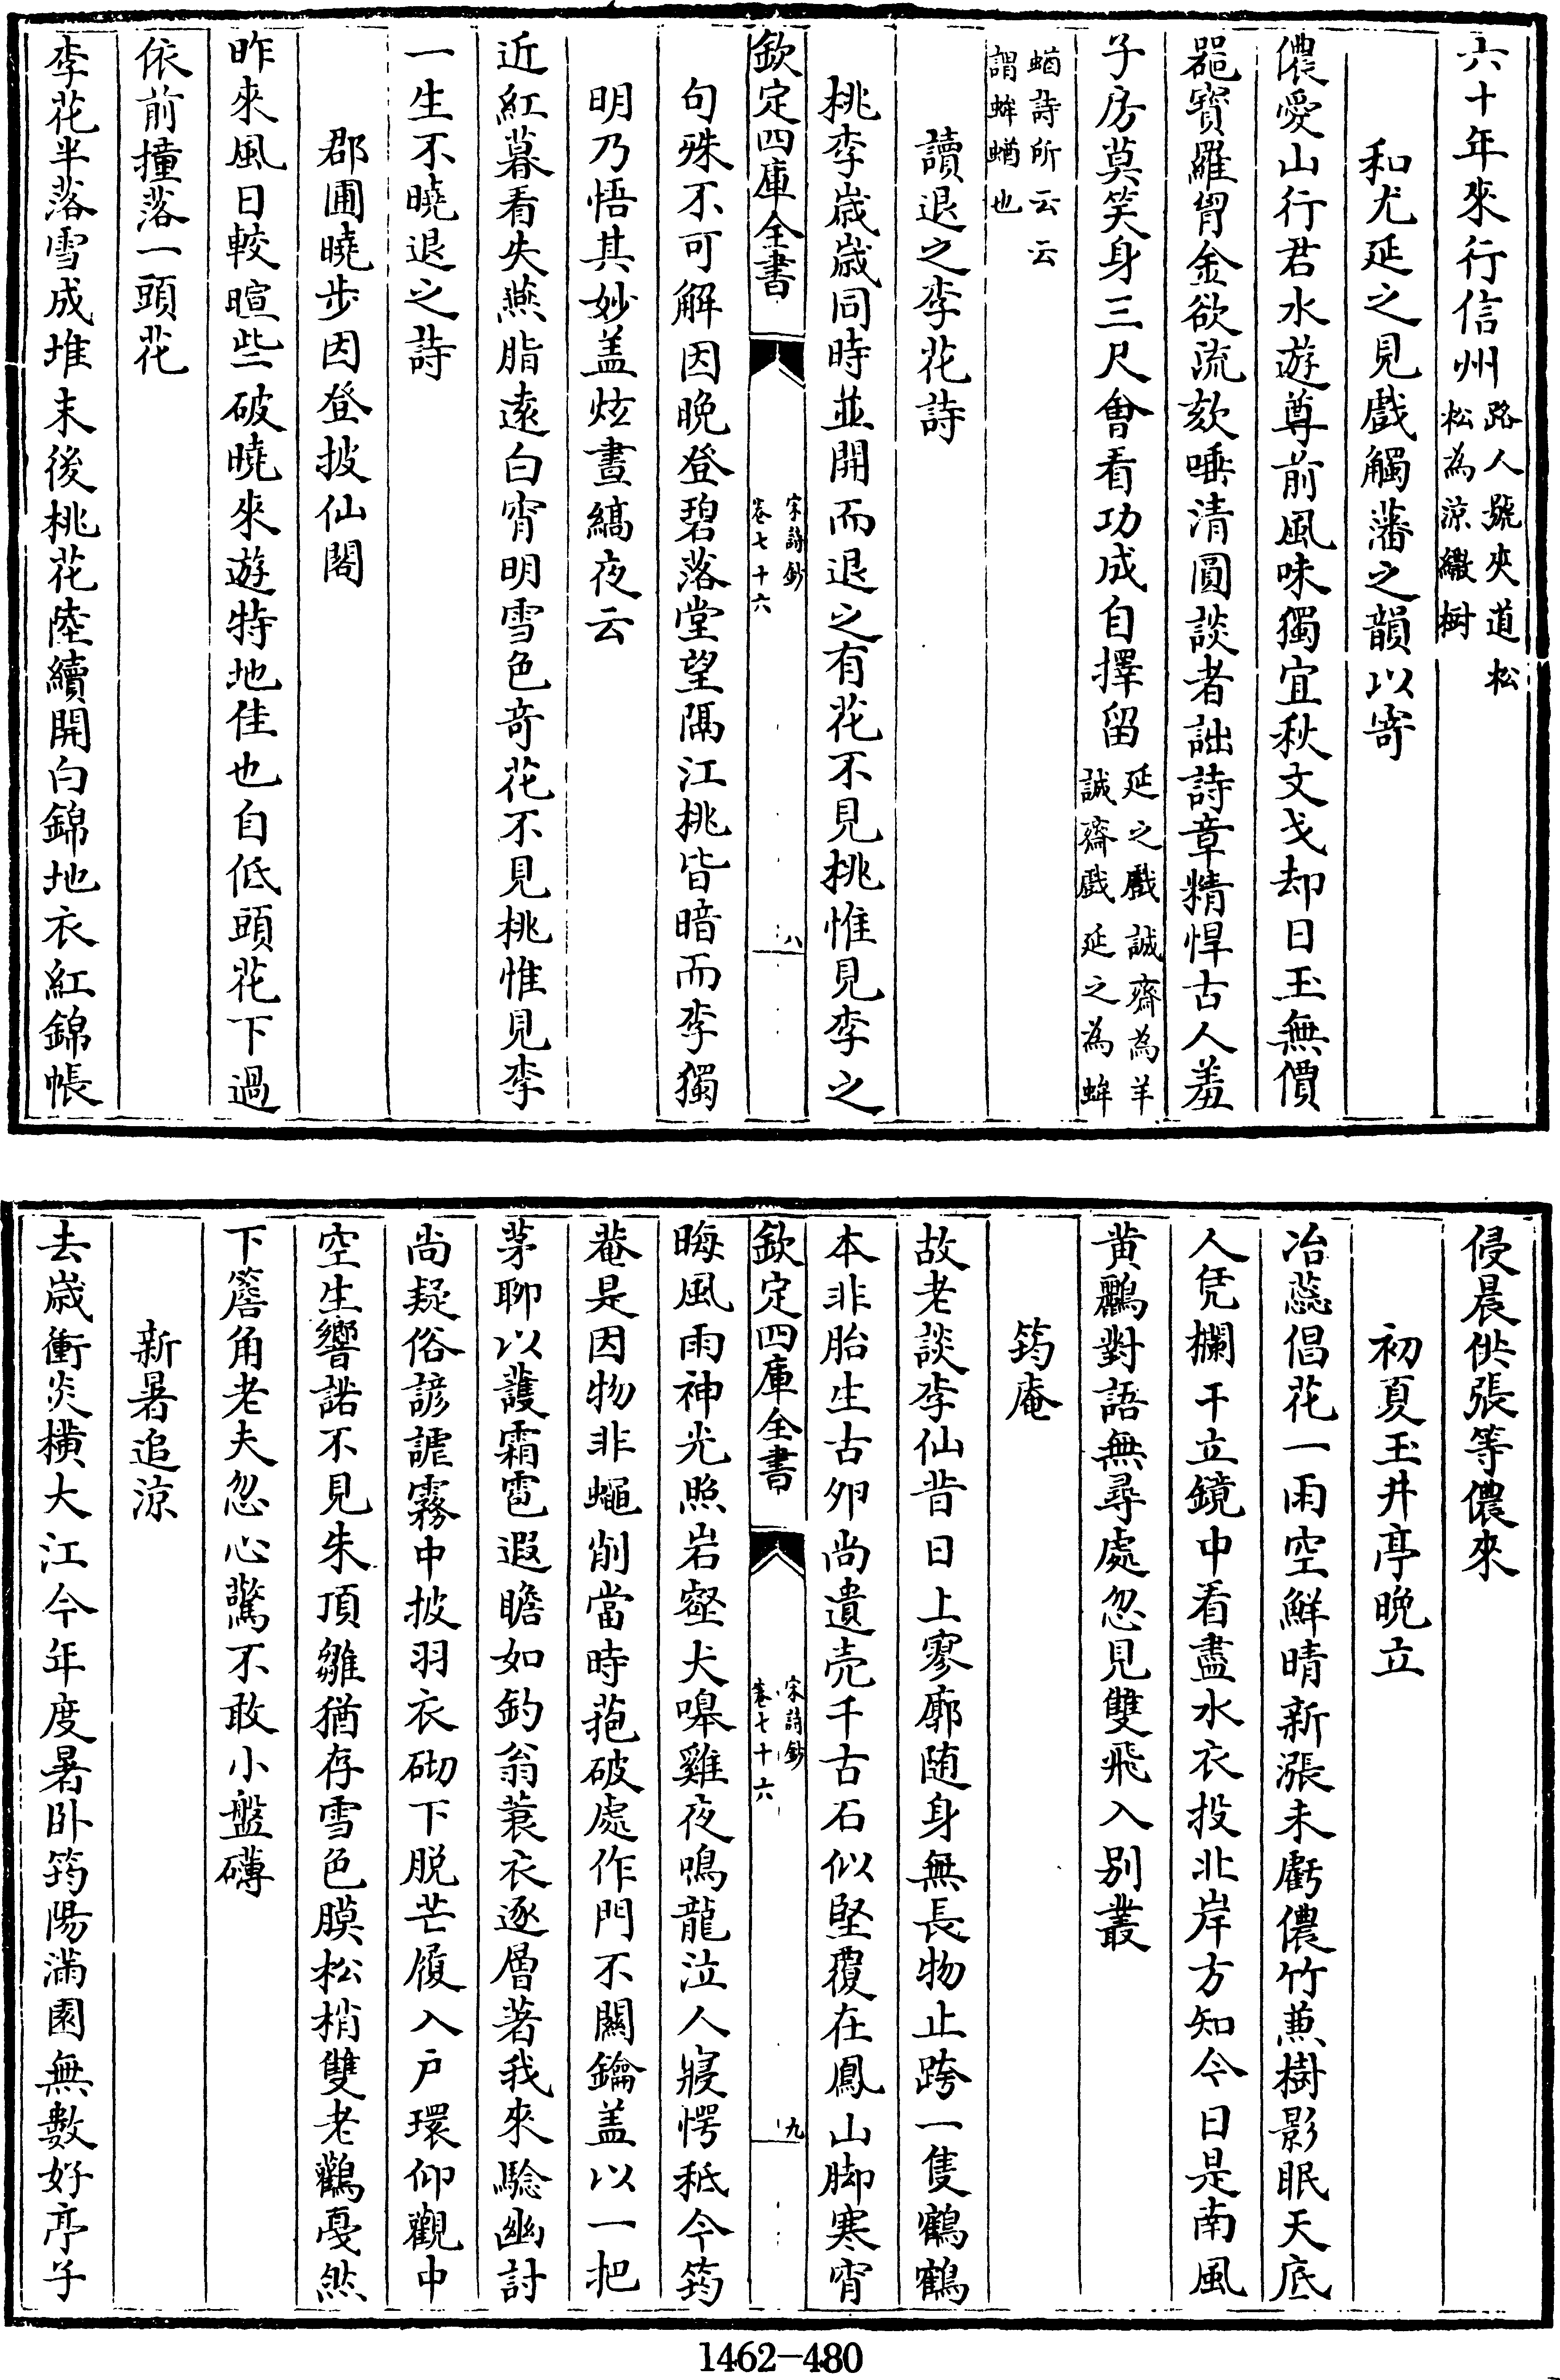 六十年來行信州路人號夾道松松為涼繖樹
和尤延之見戲觸藩之韻以寄
儂愛山行君水遊尊前風味獨宜秋文戈却日玉無價
器寳羅胷金欲流欬唾清圓談者詘詩章精悍古人羞
子房莫笑身三尺會看功成自擇留延之戲誠齋為羊誠齋戲延之為蛑
蝤詩所云云謂蛑蝤也
讀退之李花詩
桃李歲歲同時並開而退之有花不見桃惟見李之
欽定四庫全書 宋詩鈔卷七十六 八
句殊不可解因晩登碧落堂望隔江桃皆暗而李獨
明乃悟其妙盖炫晝縞夜云
近紅暮看失燕脂逺白宵明雪色奇花不見桃惟見李
一生不曉退之詩
郡圃曉步因登披仙閣
昨來風日較暄些破曉來遊特地佳也自低頭花下過
依前撞落一頭花
李花半落雪成堆末後桃花陸續開白錦地衣紅錦帳
侵晨供張等儂來
初夏玉井亭晩立
冶蕊倡花一雨空鮮晴新漲未虧儂竹蕉樹影眠天底
人凭欄干立鏡中看盡水衣投北岸方知今日是南風
黄鸝對語無尋處忽見雙飛入别叢
筠庵
故老談李仙昔日上寥廓随身無長物止跨一隻鶴鶴
本非胎生古卵尚遺壳千古石似堅覆在鳳山脚寒宵
欽定四庫全書 宋詩鈔卷七十六 九
晦風雨神光照岩壑犬嘷雞夜鳴龍泣人寢愕秪今筠
菴是因物非蠅削當時葩破處作門不闗鑰盖以一把
茅聊以䕶霜雹遐瞻如釣翁蓑衣逐層著我來驗幽討
尚疑俗諺謔霧中披羽衣砌下脱芒履入户環仰觀中
空生響諾不見朱頂雛猶存雪色膜松梢雙老鸛戞然
下簷角老夫忽心驚不敢小盤礴
新暑追涼
去歲衝炎横大江今年度暑卧筠陽滿園無數好亭子
1462-480